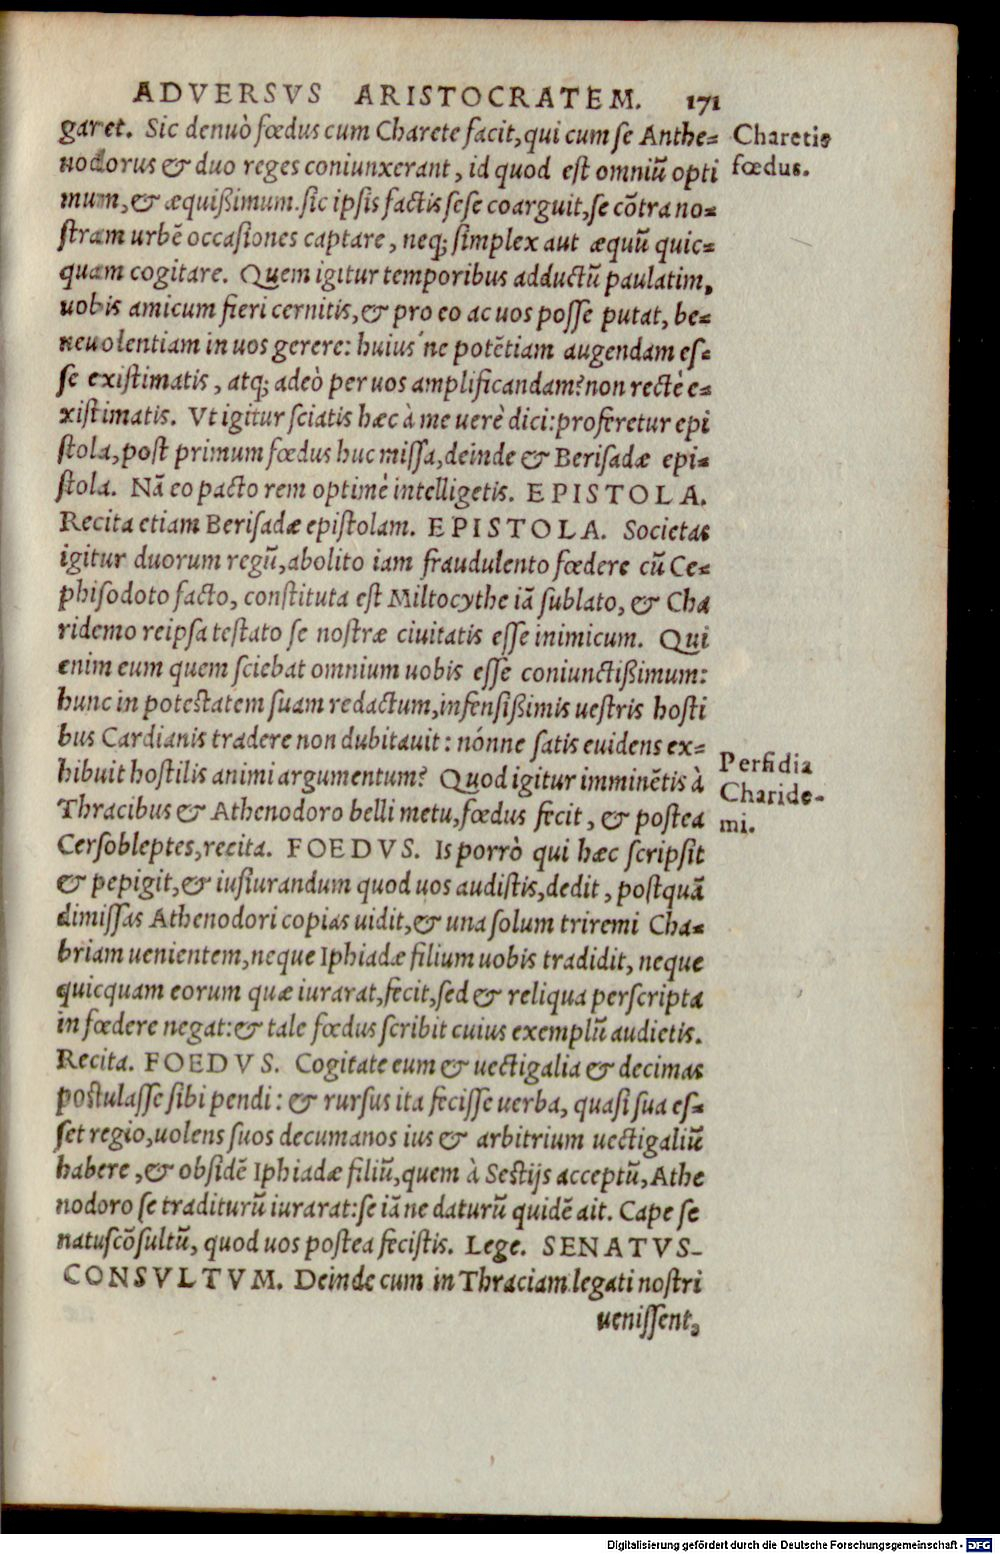 ADVERSVS ARISTOCRATEM. 171
garet. Sic denuò fœdus cum Charete facit, qui cum se Anthe-
Charetis
nodorus & duo reges coniunxerant, id quod est omniũ opti
fœdus.
mum, & æquißimum. sic ipsis factis sese coarguit, se cõtra no-
stram urbẽ occasiones captare, neq; simplex aut æquũ quic-
quam cogitare. Quem igitur temporibus adductũ paulatim,
uobis amicum fieri cernitis, & pro eo ac uos posse putat, be-
neuolentiam in uos gerere: huius´ne potẽtiam augendam es-
se existimatis, atq; adeò per uos amplificandam? non rectè e-
xistimatis. Vt igitur sciatis hæc à me uerè dici: proferetur epi
stola, post primum fœdus huc missa, deinde & Berisadæ epi-
stola. Nã eo pacto rem optimè intelligetis. EPISTOLA.
Recita etiam Berisadæ epistolam. EPISTOLA. Societas
igitur duorum regũ, abolito iam fraudulento fœdere cũ Ce-
phisodoto facto, constituta est Miltocythe iã sublato, & Cha
ridemo reipsa testato se nostræ ciuitatis esse inimicum. Qui
enim eum quem sciebat omnium uobis esse coniunctißimum:
hunc in potestatem suam redactum, infensißimis uestris hosti
bus Cardianis tradere non dubitauit: nónne satis euidens ex-
hibuit hostilis animi argumentum? Quod igitur imminẽtis à
Perfidia
Charide-
mi.
Thracibus & Athenodoro belli metu, fœdus fecit, & postea
Cersobleptes, recita. FOEDVS. Is porrò qui hæc scripsit
& pepigit, & iusiurandum quod uos audistis, dedit, postquã
dimissas Athenodori copias uidit, & una solum triremi Cha-
briam uenientem, neque Iphiadæ filium uobis tradidit, neque
quicquam eorum quæ iurarat, fecit, sed & reliqua perscripta
in fœdere negat: & tale fœdus scribit cuius exemplũ audietis.
Recita. FOEDVS. Cogitate eum & uectigalia & decimas
postulasse sibi pendi: & rursus ita fecisse uerba, quasi sua es-
set regio, uolens suos decumanos ius & arbitrium uectigaliũ
habere, & obsidẽ Iphiadæ filiũ, quem à Sestijs acceptũ, Athe
nodoro se traditurũ iurarat: se iã ne daturũ quidẽ ait. Cape se
natuscõsultũ, quod uos postea fecistis. Lege. SENATVS-
CONSVLTVM. Deinde cum in Thraciam legati nostri
uenissent,
Digitalisierung gefördert durch die Deutsche Forschungsgemeinschaft - DFG